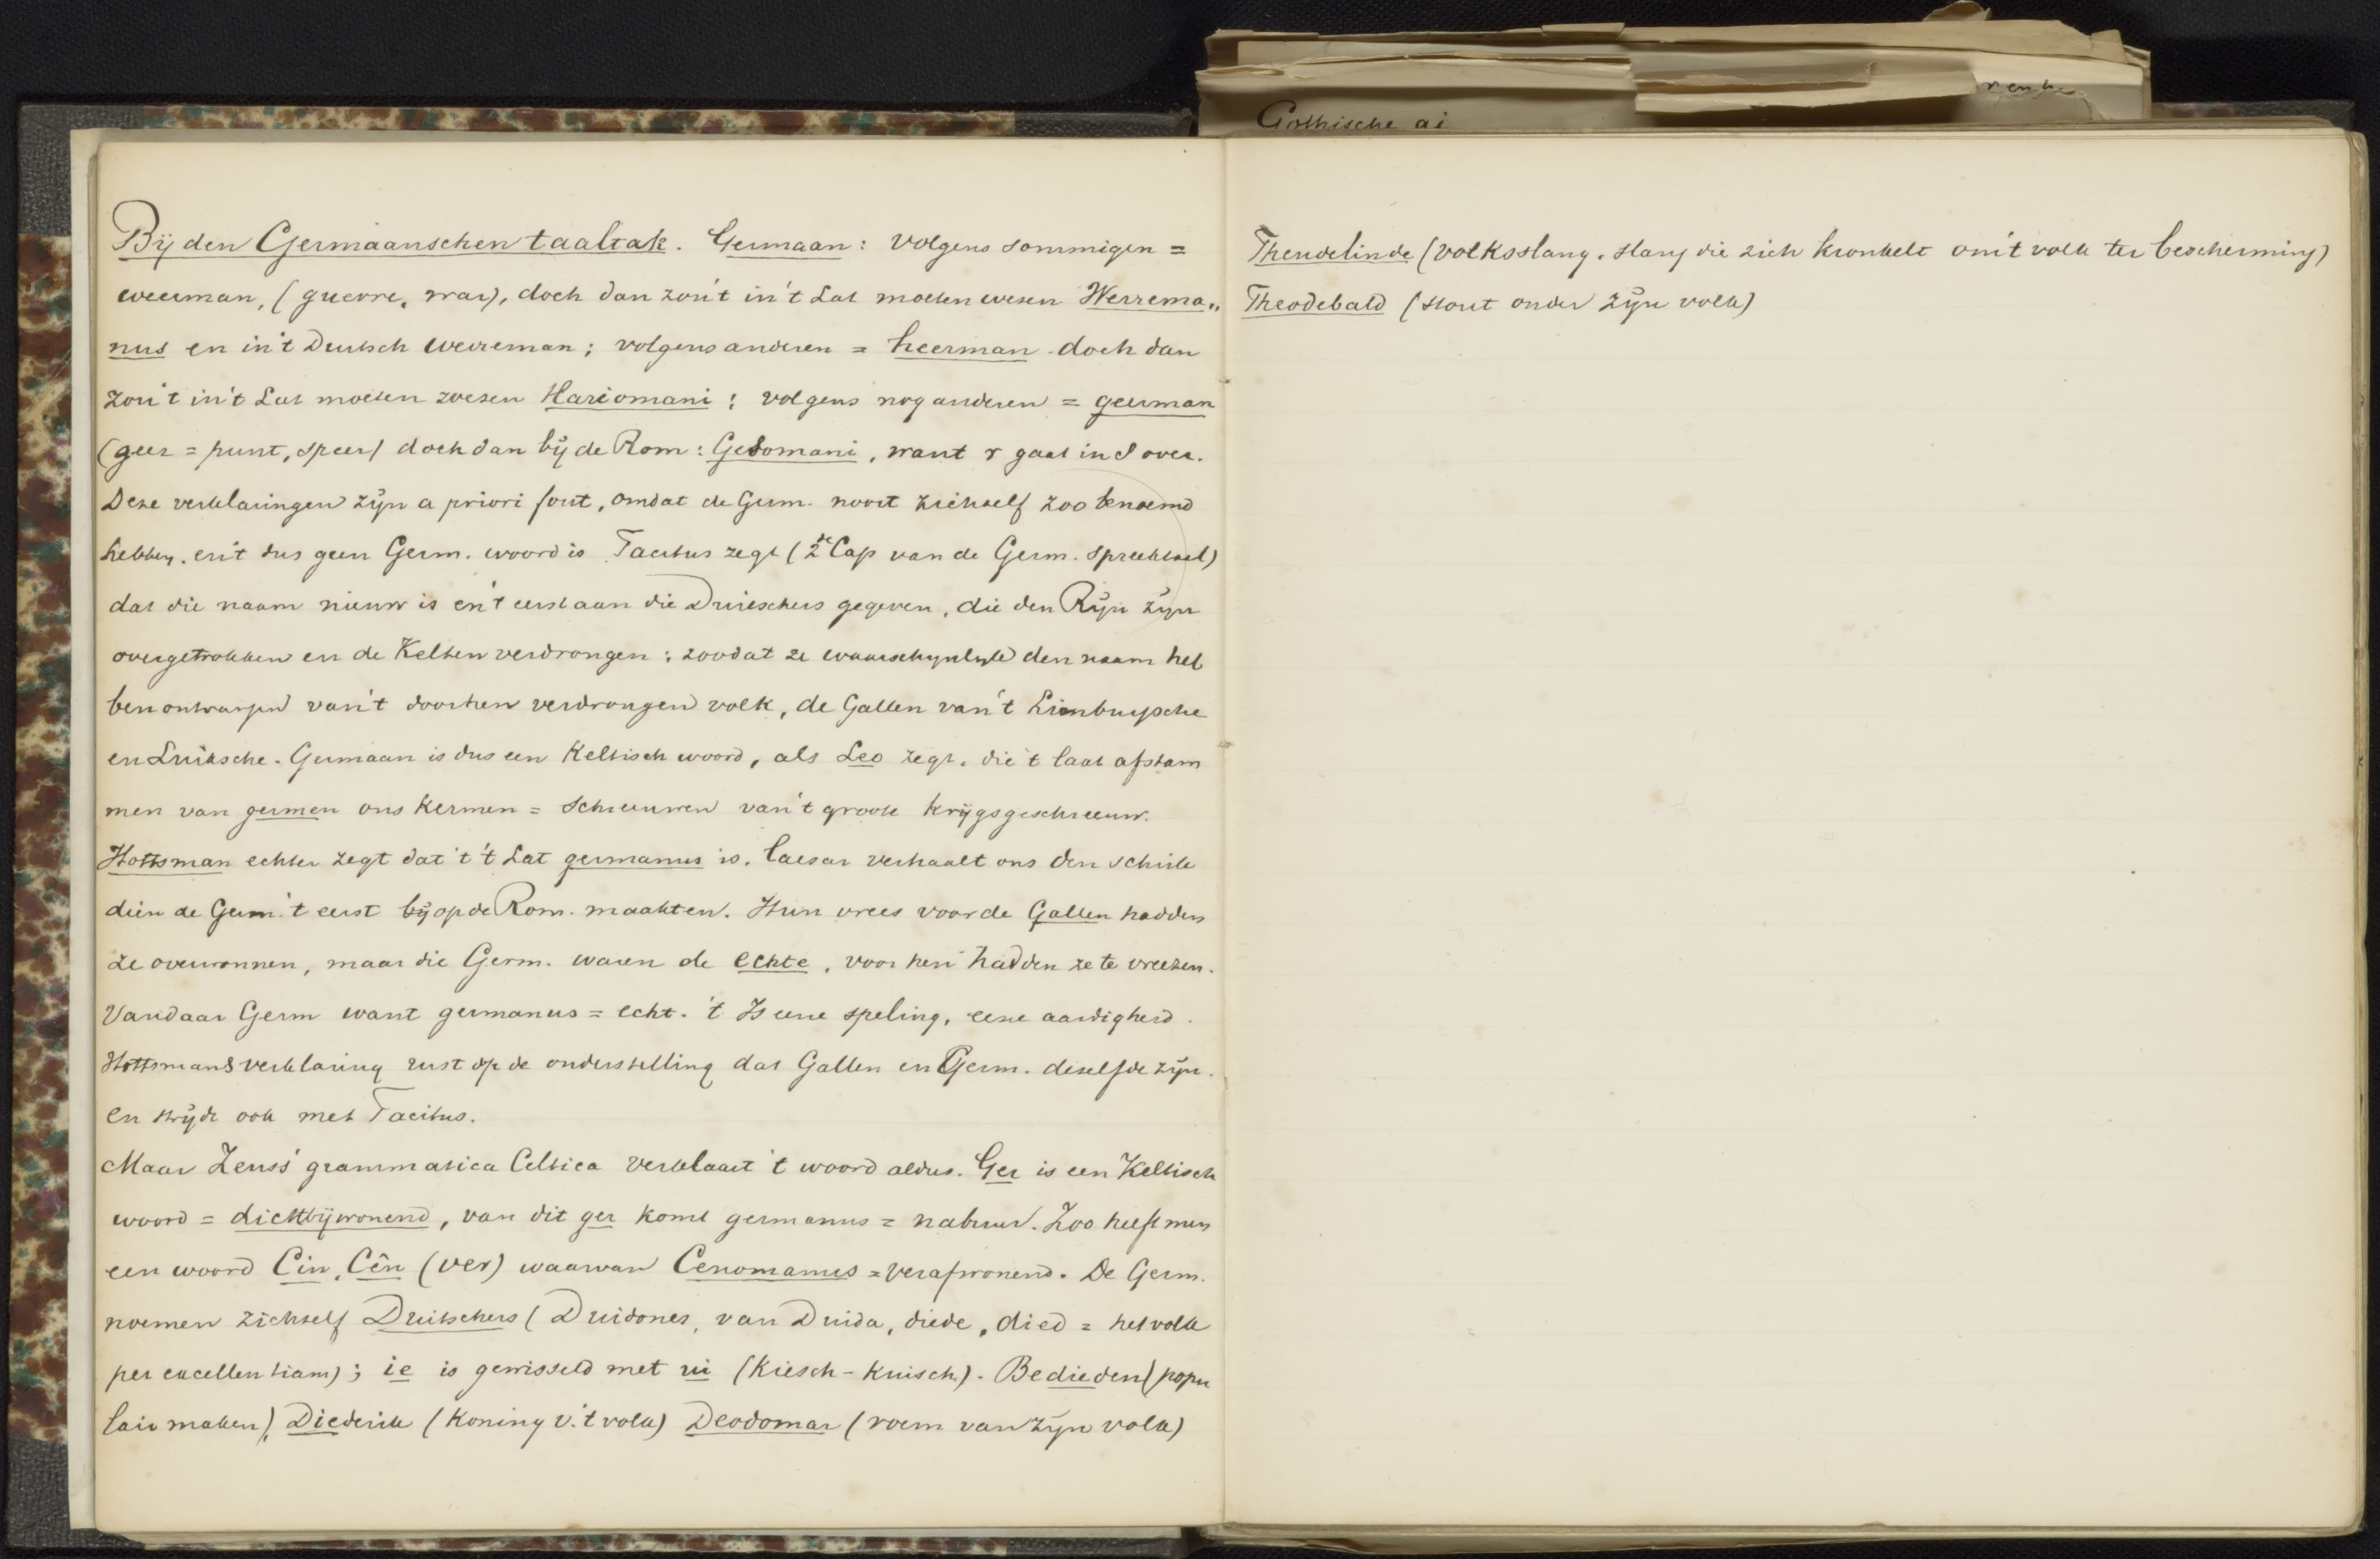 Gothische ai
Bij den Germaanschen taaltak. Germaan: volgens sommigen =
weerman, (guerre, war), doch dan zou't in't Lat moeten wesen Werrema„
nus en in't Deutsch werreman; volgens anderen = heerman - doch dan
zou't in't Lat moeten wesen Hariomani; volgens nog anderen = geerman
(geer = punt, speer) doch dan bij de Rom: Gesomani, want r gaat in s over.
Deze verklaringen zijn a priori fout, omdat de Germ. nooit zichself zoo benoemd
hebben. en't dus geen Germ. woord is Tacitus zegt (2de Cap van de Germ. spreekend)
dat die naam nieuw is en't eerst aan die Duitschers gegeven, die den Rijn zijn
overgetrokken en de Kelten verdrongen; zoodat ze waarschynlyk den naam heb
ben ontvangen van't door hen verdrongen volk, de Gallen van't Limburgsche
en Luiksche. Germaan is dus een Keltisch woord, als Leo zegt, die 't laat afstam
men van germen ons kermen = schreeuwen van't groote krijgsgeschreeuw.
Hottsman echter zegt dat 't 't Lat germanus is. Caesar verhaalt ons den schrik
dien de Germ. 't eerst bij op de Rom. maakten. Hun vrees voor de Gallen hadden
ze overwonnen, maar die Germ. waren de echte, voor hen hadden ze te vreezen.
Vandaar Germ want germanus = echt. 't Is eene speling, eene aardigheid.
Hottsmans verklaring rust op de onderstelling dat Gallen en Germ. deselfde zijn.
en strijdt ook met Tacitus.
Maar Zeuss' grammatica Celtica verklaart 't woord aldus. Ger is een Keltisch
woord = dichtbijwonend, van dit ger komt germanus = nabuur. Zoo heeft men
een woord Cin, Cên (ver) waarvan Cenomanus = verafwonend. De Germ.
noemen zichself Duitschers (Duidones, van Duida, diede, died = het volk
per excellentiam); ie is gewisseld met ui (kiesch - kuisch). Bedieden (popu
lair maken), Diederik (Koning v. 't volk) Deodomar (roem van zijn volk)
Theudelinde (volksslang. slang die zich kronkelt om't volk ter bescherming)
Theodebald (stout onder zijn volk)